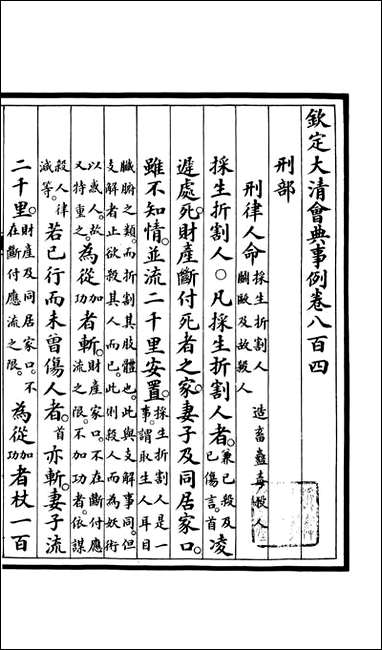 欽定大清會典事例卷八百四
刑部
刑律人命採生折割人 造畜蠱毒殺人
鬭毆及故殺人
採生折割人○凡採生折割人者兼已殺及
已傷言首凌
遲處死財產斷付死者之家妻子及同居家口
雖不知情並流二千里安置採生折割人是一
事謂取生人耳目
臟腑之類而折割其肢體也此與支解事同但
支解者止欲殺其人而已此則殺人而為妖術
以惑人故
又特重之為從加
功者斬財產家口不在斷付應
流之限不加功者依謀
殺人律
減等若已行而未曾傷人者首亦斬妻子流
二千里財產及同居家口不
在斷付應流之限為從加
功者杖一百